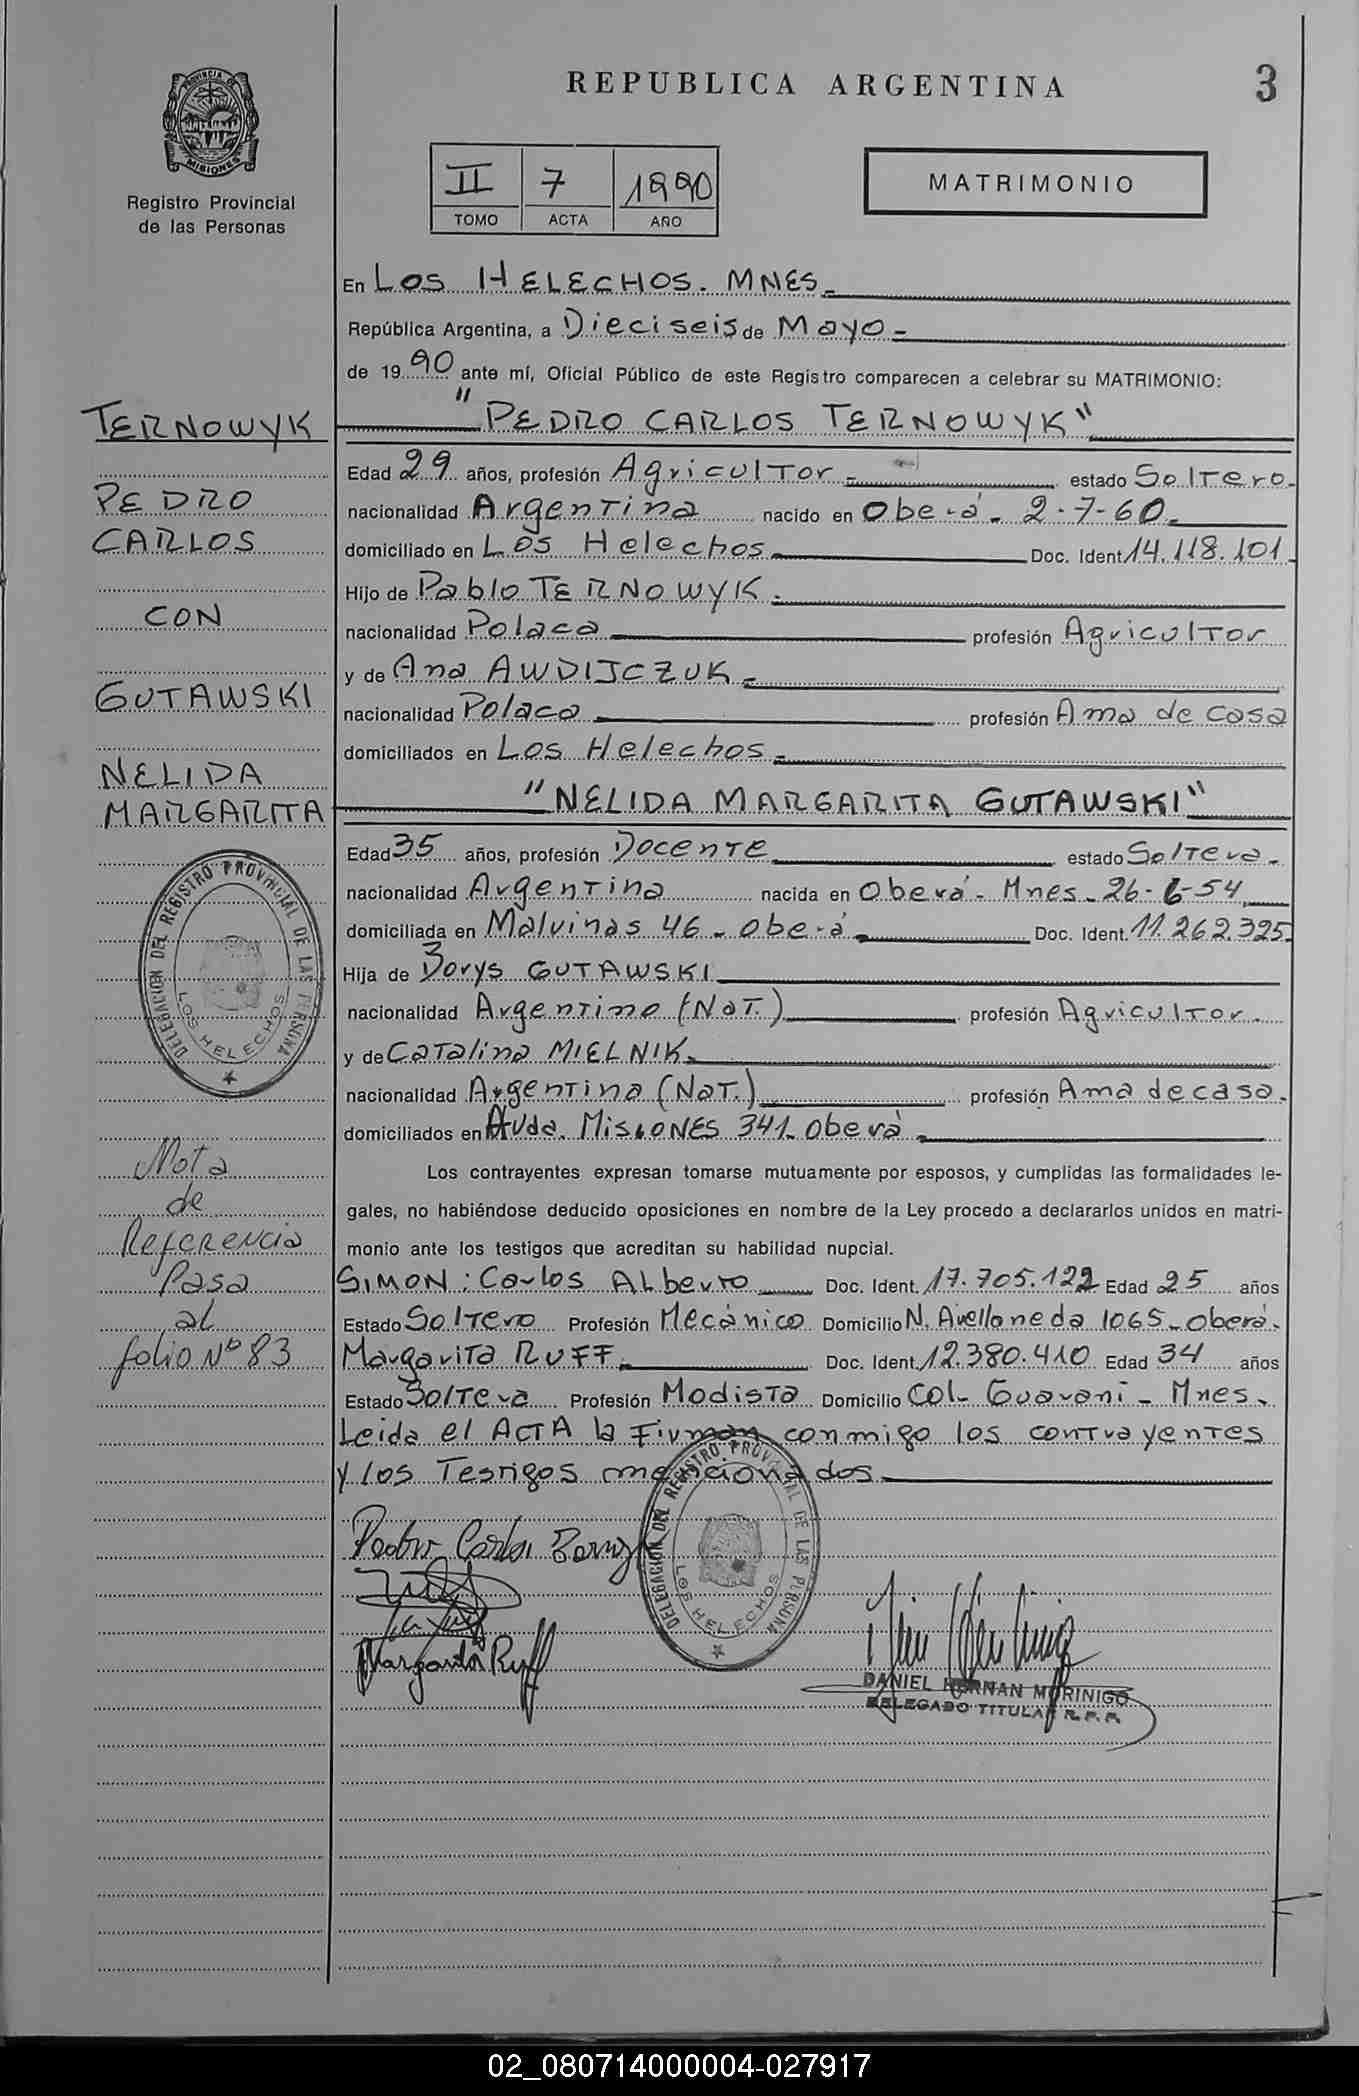 REPUBLICA ARGENTINA
3
PROVINCIA DE
MISIONES
Registro Provincial
de las Personas
II 7 1990
TOMO ACTA AÑO
MATRIMONIO
En LOS HELECHOS. MNES.
República Argentina, a Dieciseis de Mayo-
de 1990 ante mí, Oficial Público de este Registro comparecen a celebrar su MATRIMONIO:
"PEDRO CARLOS TERNOWYK"
Edad 29 años, profesión Agricultor.- estado Soltero.
nacionalidad Argentina nacido en Oberá. 2-7-60.
domiciliado en Los Helechos Doc. Ident. 14.118.101.
Hijo de Pablo TERNOWYK.
nacionalidad Polaca profesión Agricultor
y de Ana AWDIJCZUK.
nacionalidad Polaca profesión Ama de casa
domiciliados en Los Helechos.
"NELIDA MARGARITA GUTAWSKI"
Edad 35 años, profesión Docente estado Soltera.
nacionalidad Argentina nacida en Oberá - Mnes. 26-6-54
domiciliada en Malvinas 46 - Oberá. Doc. Ident. 11.262.325.
Hija de Borys GUTAWSKI
nacionalidad Argentino (Nat.) profesión Agricultor.
y de Catalina MIELNIK.
nacionalidad Argentina (Nat.) profesión Ama de casa.
domiciliados en Avda. MISIONES 341. Oberá.
Los contrayentes expresan tomarse mutuamente por esposos, y cumplidas las formalidades le-
gales, no habiéndose deducido oposiciones en nombre de la Ley procedo a declararlos unidos en matri-
monio ante los testigos que acreditan su habilidad nupcial.
SIMON: Carlos Alberto Doc. Ident. 17.705.122 Edad 25 años
Estado Soltero Profesión Mecánico Domicilio N. Avellaneda 1065 - Oberá.
Margarita RUFF. Doc. Ident. 12.380.410 Edad 34 años
Estado Soltera Profesión Modista Domicilio Col- Guaraní - Mnes.
Leida el ACTA la Firman conmigo los contrayentes
y los Testigos mencionados
TERNOWYK
PEDRO
CARLOS
CON
GUTAWSKI
NELIDA
MARGARITA
DELEGACION DEL REGISTRO PROVINCIAL DE LAS PERSONA
LOS HELECHOS
Nota
de
Referencia
Pasa
al
folio Nº 83
DELEGACION DEL REGISTRO PROVINCIAL DE LAS PERSONA
LOS HELECHOS
Pedro Carlos
Margarita Ruff
DANIEL HERNAN MORINIGO
DELEGADO TITULAR R.P.P.
02_080714000004-027917